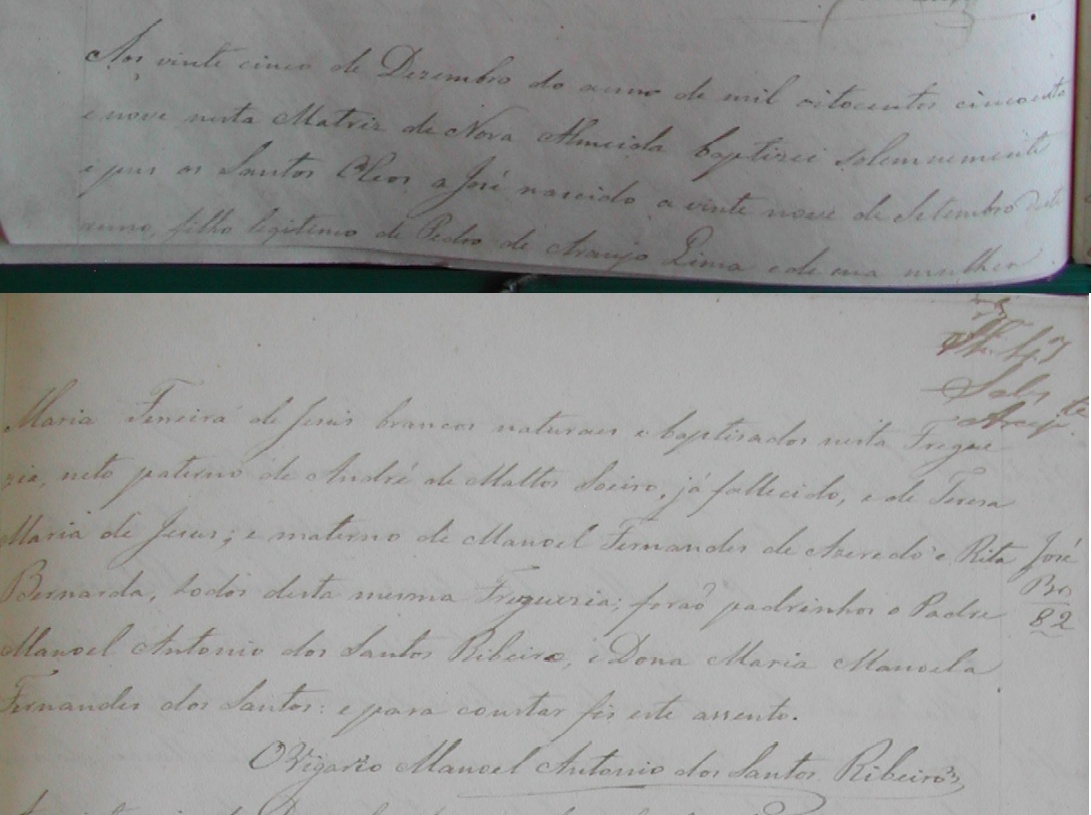 Aos vinte cinco de Dezembro do anno de mil oitocentos cincoenta
e nove nesta Matriz de Nova Almeida baptizei solemnemente
e pus os Santos Oleos a José nascido a vinte nove de Setembro deste
anno, filho legitimo de Pedro de Araujo Lima e de sua mulher
Maria Ferreira de Jesus brancos naturaes e baptisados nesta Fregue
zia, neto paterno de André de Mattos Soeiro, já fallecido, e de Teresa
Maria de Jesus; e materno de Manoel Fernandes de Azeredo e Rita
Bernarda, todos desta mesma Freguezia; foraõ padrinhos o Padre
Manoel Antonio dos Santos Ribeiro, e Dona Maria Manoela
Fernandes dos Santos: e para constar fis este assento.
O Vigario Manoel Antonio dos Santos Ribeiro
José
Br.
82